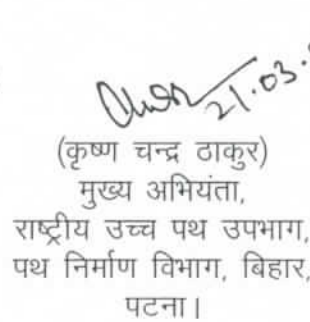 21.03.
(कृष्ण चन्द्र ठाकुर)
मुख्य अभियंता,
राष्ट्रीय उच्च पथ उपभाग,
पथ निर्माण विभाग, बिहार,
पटना।